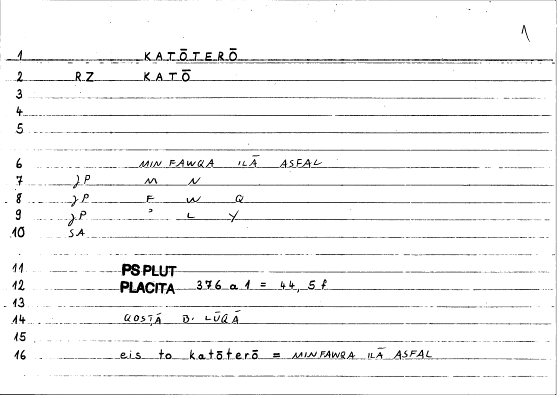 1
1 KATŌTERŌ
2 RZ KATŌ
3
4
5
6 MIN FAWQA ILĀ ASFAL
7 JP M N
8 JP F W Q
9 JP ʾ L Y
10 SA
11 PS PLUT
12 PLACITA 376 a 1 = 44, 5 f
13
14 QOSṬĀ B. LŪQĀ
15
16 eis to katōterō = MIN FAWQA ILĀ ASFAL